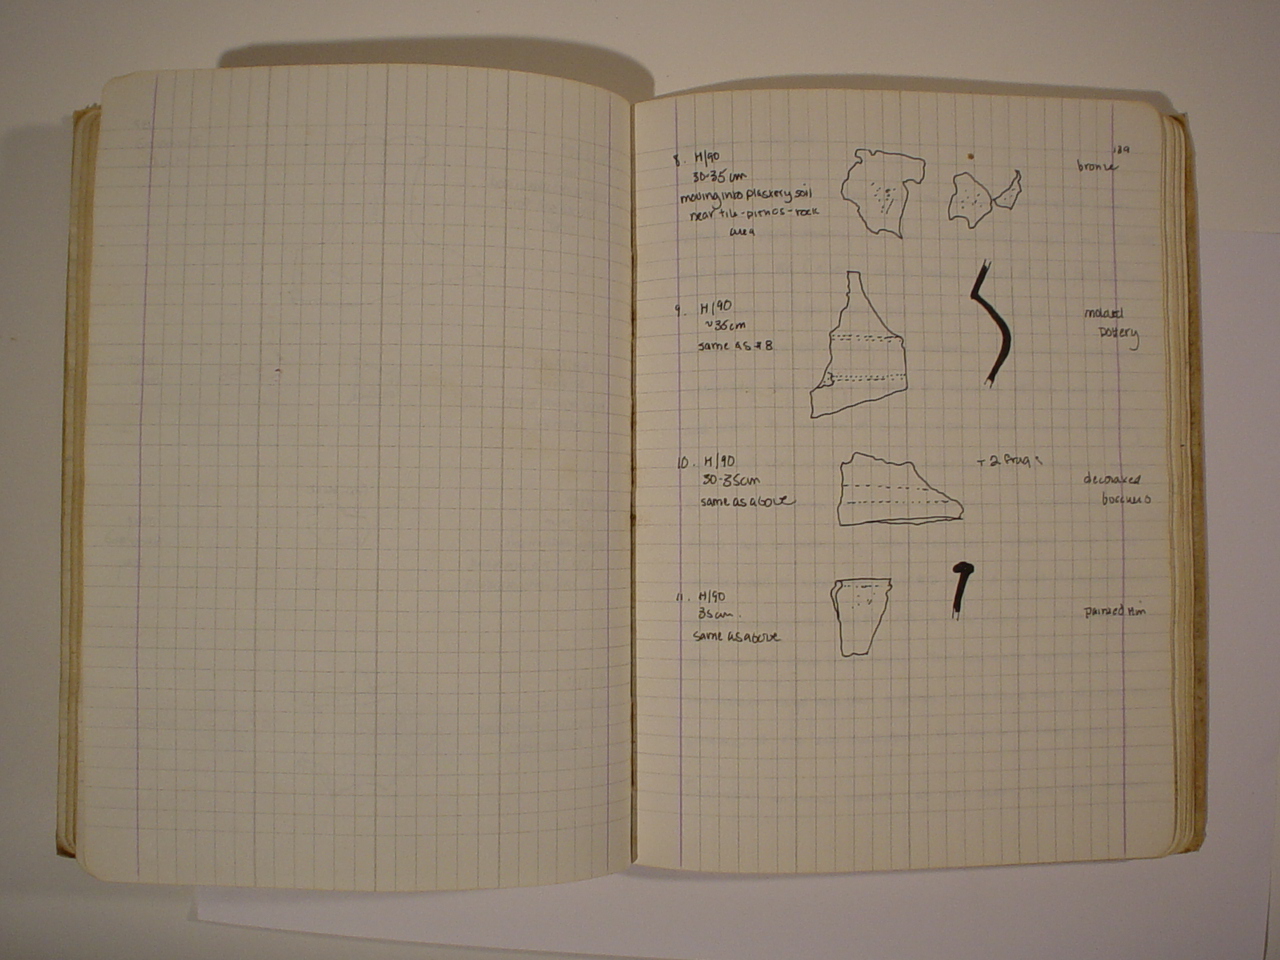 139
8. H/90
30-35 cm
moving into plastery soil
near tile-pithos-rock
area
bronze
9. H/90
~35cm
same as #8
molded
pottery
10. H/90
30-35cm
same as above
+ 2 frags
decorated
bucchero
11. H/90
35cm.
same as above
painted rim